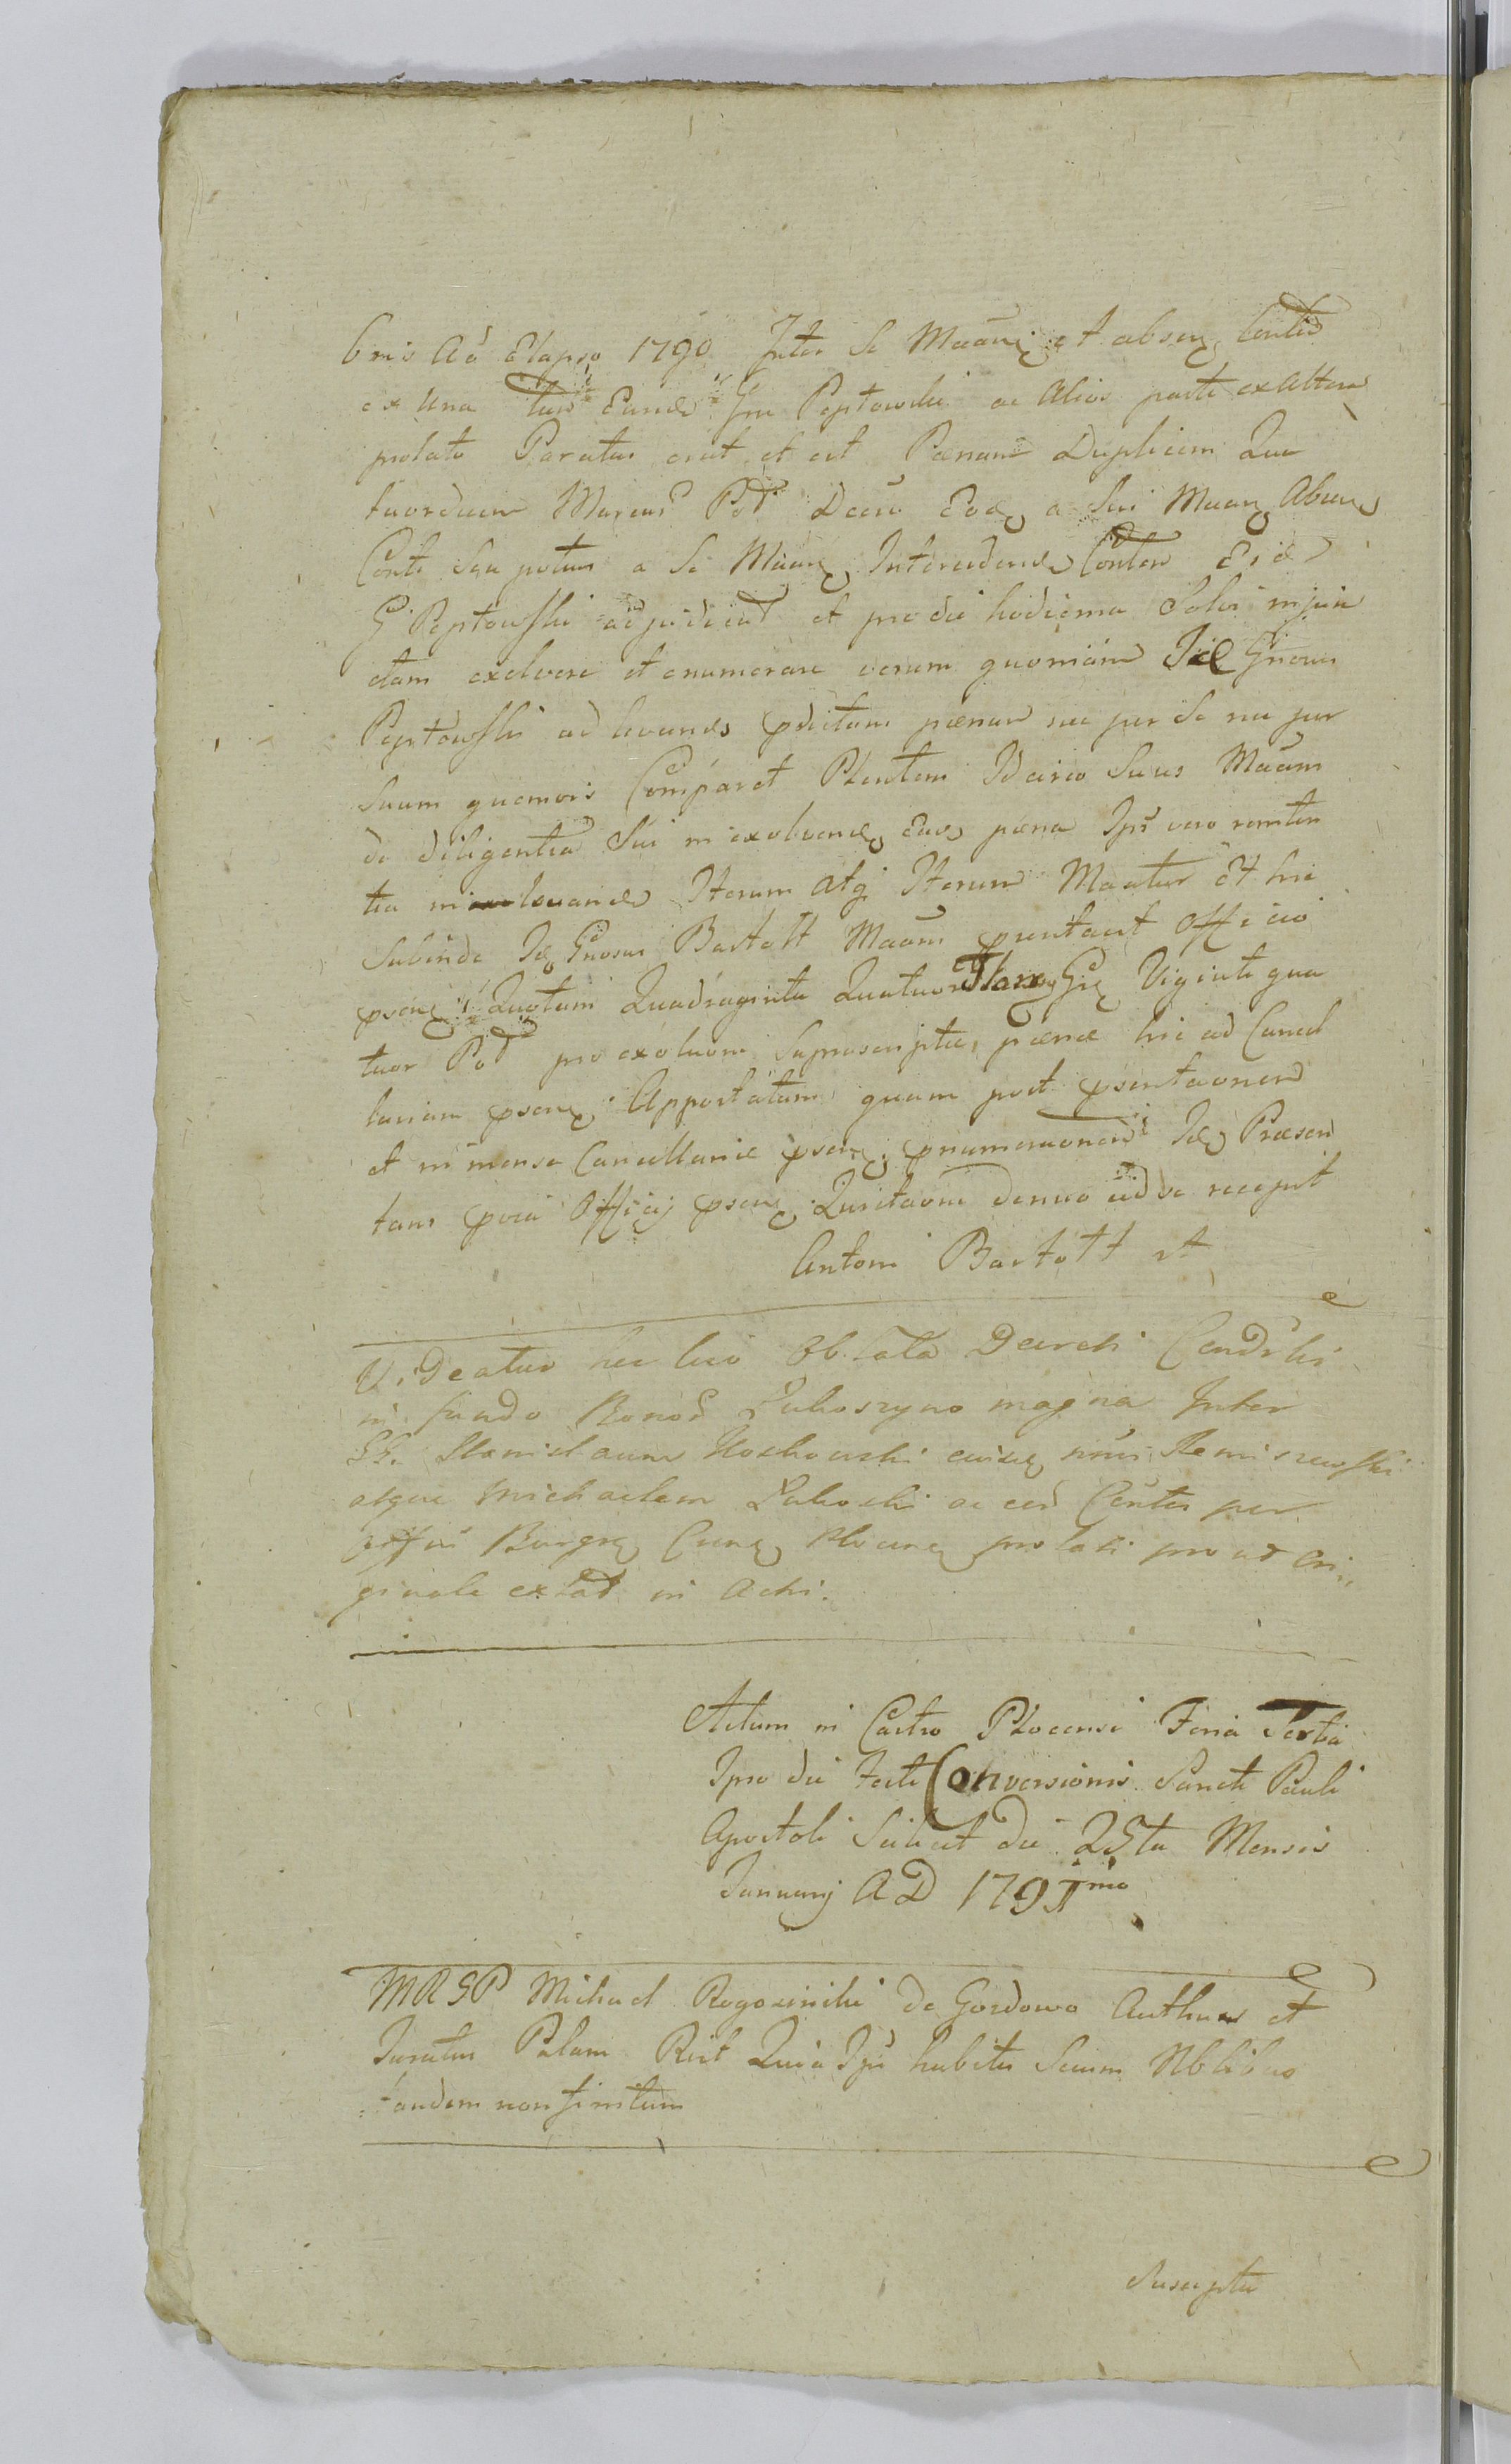 bris Aō Elapso 1790 Inter Se Maan̄ę et absen̄ę Contēs
ex Una Eund Gn Peptowski ac Alios parte ex Altera
prolato Paratus erat et est Pænam Duplicem Qua
tuordecim Marcas Pol Decrō Eodę a Sui Maanę Absenę
Conte seu potius a Se Maanę Intercedendę Eid
G Peptowski adjudicat et pro die hodierna Solvi injun
ctam exolvere et enumerare verum quoniam Id Gnosus
Peptowski ad levandę pdictam pænam nec per Se nec per
Suum quemvis Comparet Plentem Idcirco Suus Maam
de diligentia Sui in exolvendę Eadę pæna Ipi vero reniten
tia in levanda Iterum atq Iterum Maatur Et hic
Subinde Idę Gnosus Bartołt Maam pæntavit Officio
psenę Quotam Quadraginta Quatuor Florę Grę Viginti qua
tuor Pol pro exolvom Suprascriptæ pænæ hic ad Cancel
lariam psenę Apportatam quam post psentaonem
et in mensa Cancellariæ psenę pnumeraonem Idę Præsen
tans pvia Officij psenę Quietaone denuo ad se recepit
Antoni Bartołt
Videatur hic loco Oblata Decreti Condski
in fundo Bonoř Łukoszyno magna Inter
GG. Stanislaum Koskowski
atque Michaelem Łukoski ac eos Contes per
Offiū Burgrę Plocenę prolati prout ori,,
ginale extat in Actis.
Actum in Castro Plocensi Feria Tertia
Ipso die Festi Conversionis Sancti Pauli
Apostoli Scilicet die 25ta Mensis
Januarij A D 1791mo
MRSP Michael Rogozinski de Gordowo Authus et
Juratus Palam Rict Quia Ipē habitis Secum Nblibus
tandem non finitum
Suscepta